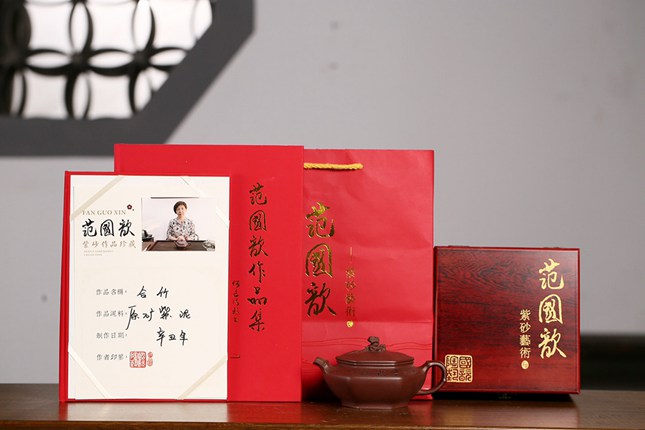 FAN GUO XIN
范國歆
紫砂作品珍藏
作品名稱：合竹
作品泥料：原矿紫泥
制作日期：辛丑年
作者印鑒：
范國歆作品集
范國歆
紫砂藝術
范國歆
紫砂藝術